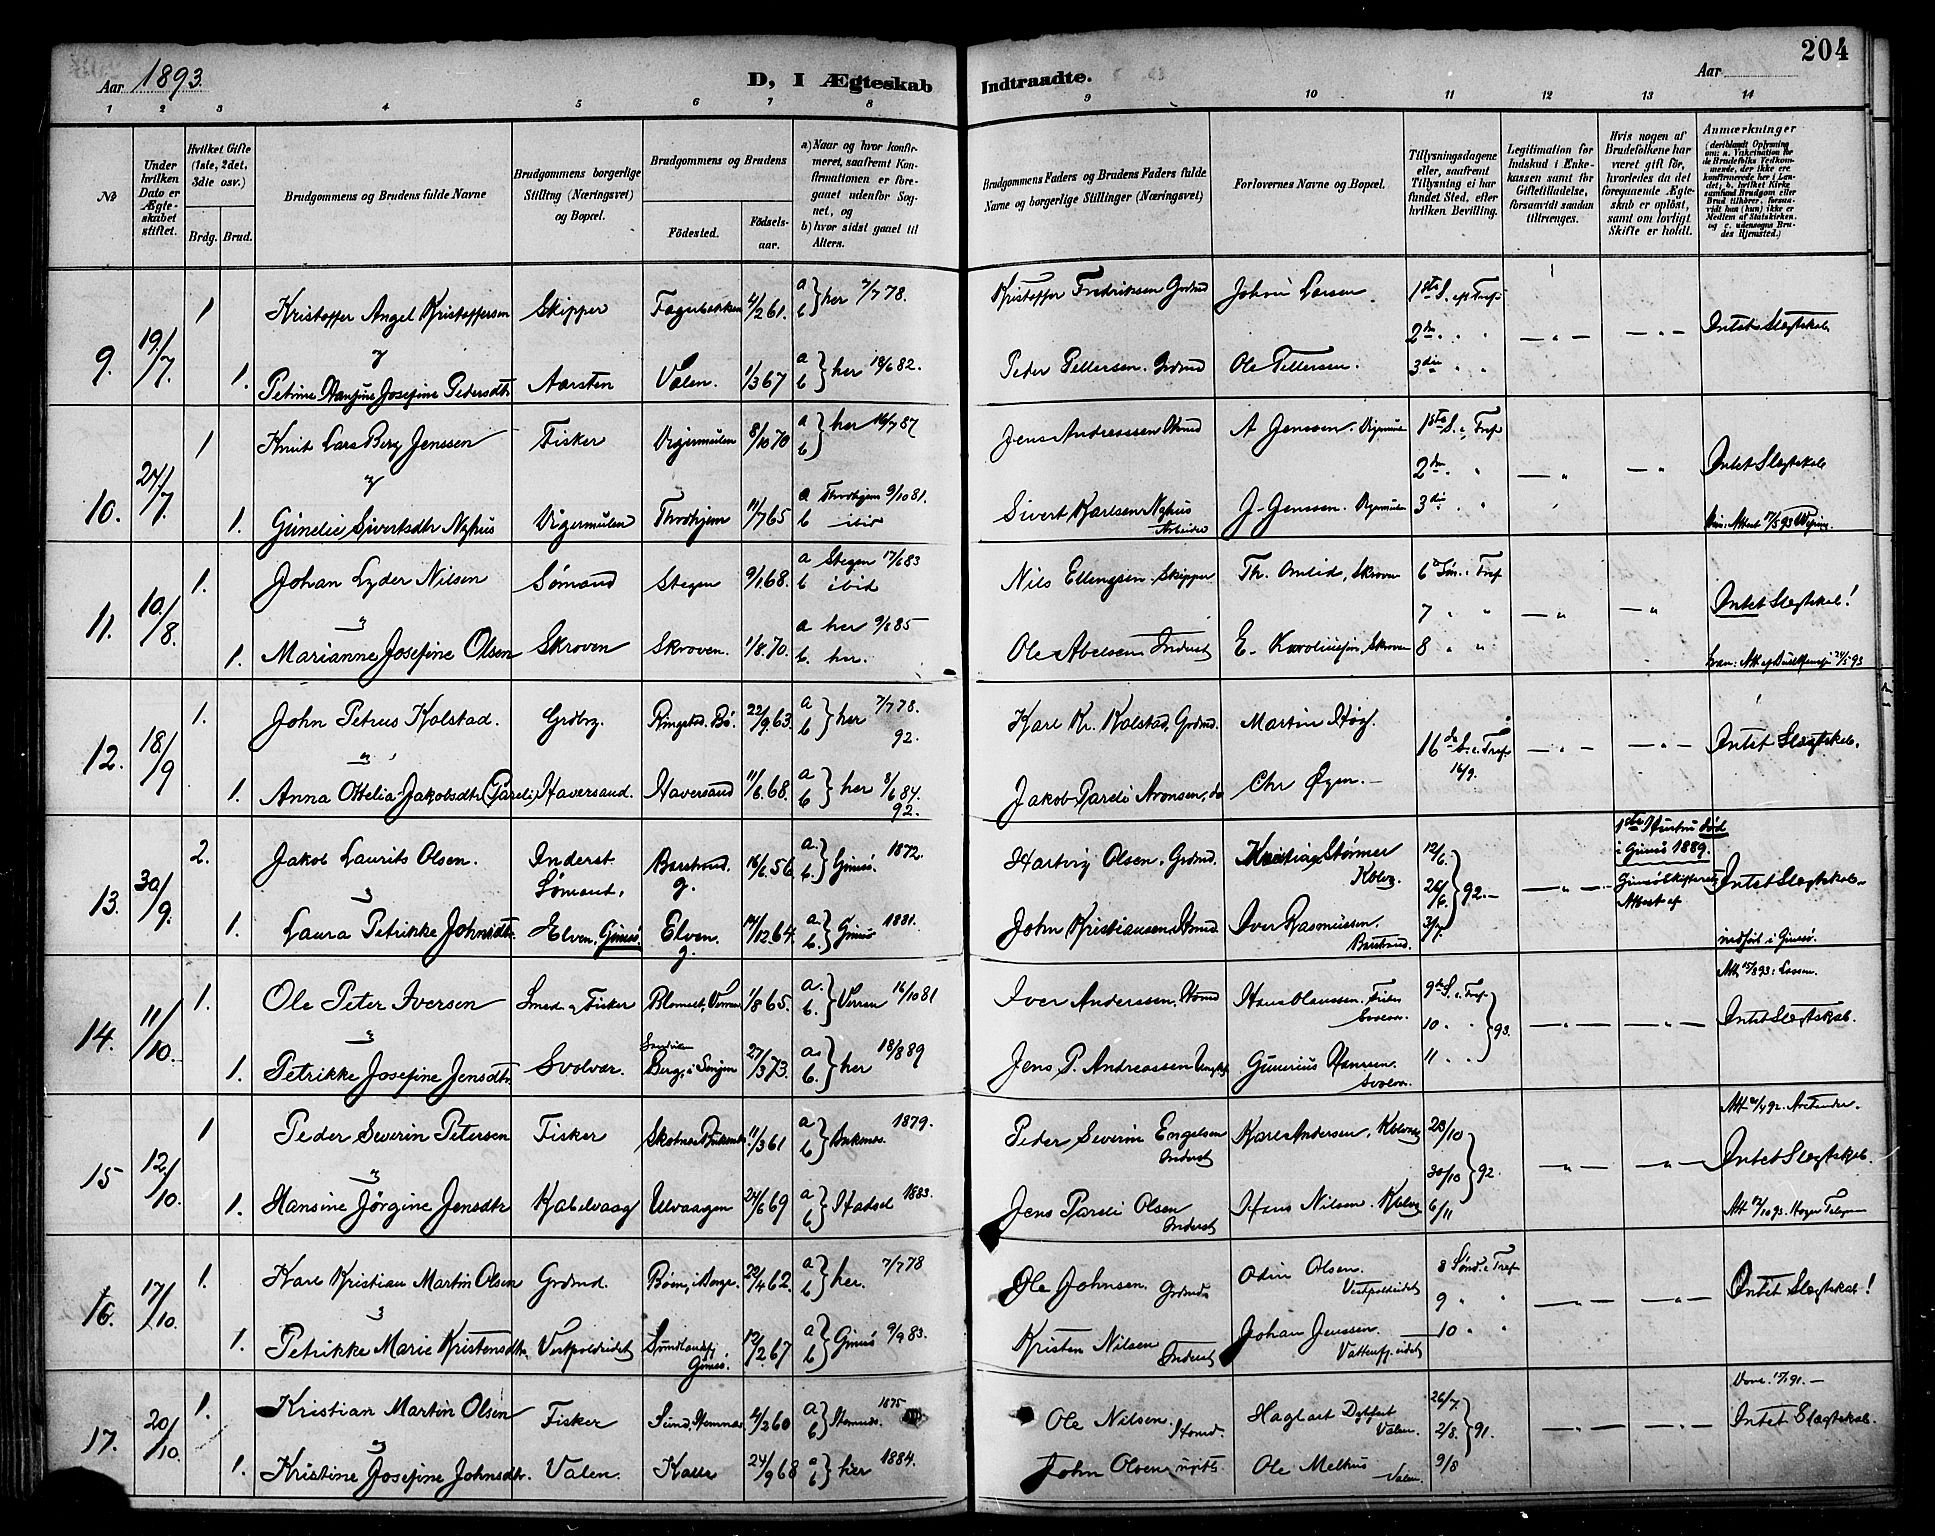 204
Aar 1893.
D, I Ægteskab Indtraadte.
Aar
1 2 3 4 5 6 7 8 9 10 11 12 13 14
No
Under hvilken Dato er Ægteskabet stiftet.
Hvilket Gifte (1ste, 2det, 3die osv.)
Brdg. Brud.
Brudgommens og Brudens fulde Navne
Brudgommens borgerlige Stilling (Næringsvei) og Bopæl.
Brudgommens og Brudens
Fødested. Fødselsaar.
a) Naar og hvor konfirmeret, saafremt Konfirmationen er foregaaet udenfor Sognet, og
b) hvor sidst gaaet til Alters.
Brudgommens Faders og Brudens Faders fulde Navne og borgerlige Stillinger (Næringsvei)
Forlovernes Navne og Bopæl.
Tillysningsdagene eller, saafremt Tillysning ei har fundet Sted, efter hvilken Bevilling.
Legitimation for Indskud i Enkekassen samt for Giftetilladelse, forsaavidt saadan tiltrænges.
Hvis nogen af Brudefolkene har været gift før, hvorledes da det foregaaende Ægteskab er opløst, samt om lovligt Skifte er holdt.
Anmærkninger (deriblandt Oplysning om: a. Vakcination for de Brudefolks Vedkommende, der ikke ere konfirmerede her i Landet; b. hvilket Kirkesamfund Brudgom eller Brud tilhører, forsaavidt han (hun) ikke er Medlem af Statskirken. og c. udensogns Brudes Hjemsted.)
9. 19/7. 1 Kristoffer Angel Kristoffersen Skipper Fagerbakken 4/2 61. a b } her 7/7 78. Kristoffer Fredriksen Grdmd Johan Larsen 1ste S. eft Tref
2den " "
Intet Slægtskab
1. Petrine Hansine Josefine Pedersdtr Aarsten Valen. 1/3 67 a b } her 18/6 82. Peder Tellersen. Grdmd Ole Tellersen. 3die " "
10. 24/7. 1 Knut Lars Berg Jenssen Fisker Digermulen 8/10 70 a b } her 16/7 87 Jens Andreassen A Jenssen. Digermulen 1ste S. e. Tref
2den " "
Intet Slægtskab
1. Gunelie Sivertsdtr Nyhus Digermulen Throdhjem 11/7 65 a Throdhjem 9/10 81. b ibid Sivert Karlsen Nyhus Arbeider J. Jenssen. Digermulen 3die " "
11. 10/8. 1. Johan Lyder Nilsen Sømand Stegen 9/1 68. a Stegen 17/6 83 b ibid Nils Ellingsen. Skipper Th. Omlid, Skroven 6te Søn. e. Tref
7 " "
Intet Slægtskab!
1. Marianne Josefine Olsen Skroven Skroven. 1/8 70. a her 9/8 85 b. her. Ole Abelsen Inderst E. Karoliusen, Skroven 8 " "
12. 18/9 1. John Petrus Kolstad. Grdbrg. Ringstad. Bø. 22/9 63. a b } her 7/7 78. 92. Karl Kr. Kolstad, Grdmd. Martin Høg. 16de S. e. Tref 16/9.
Intet Slægtskab.
1. Anna Ottelia Jakobsdtr (Pareli) Haversand. Haversand 11/6. 68. a b } her 8/6 84. 92. Jakob Pareli Aronsen, do Chr Øyen.
13. 30/9. 2. Jakob Laurits Olsen. Inderst. Sømand. Barstrand g. 16/6. 56 a. b. } Gimsø. 1872. Hartvig Olsen. Grdmd. Kristian Størmer Kblvg. 12/6. 26/6. 3/7. } 92.
1ste Hustru død i Gimsø 1889. Gimsø Skifteret Attest af
Intet Slægtskab
indført i Gimsø.
1. Laura Petrikke Johnsdtr. Elven, Gimsø Elven. g. 14/12. 64. a b. } Gimsø 1881. John Kristiansen Iver Rasmussen. Barstrand.
14. 11/10. 1. Ole Peter Iversen Smed og Fisker 1/8 65. a. b. } Verran 16/10 81 Iver Anderssen. Hans Claussen. Svolvær. 9de S. e. Tref
10 " " } 93.
Intet Slægtskab.
1. Petrikke Josefine Jensdtr Svolvær. Berg, i Senjen 27/3 73. a. b. } her 18/8 89 Jens P. Andreassen Gunerius Hansen. Svolvær. 11 " "
15 12/10. 1 Peder Severin Petersen Fisker 11/3 61 a b } Ankenes. 1879. Peder Severin Engelsen Inderst Karl Andersen. Kblvåg 23/10 30/10 6/11 } 92.
Intet Slægtskab.
1. Hansine Jørgine Jensdtr Kabelvaag Ulvaagen 24/6 69 a b } Hadsel 1883. Jens Pareli Olsen Inderst Hans Nilsen. Kblvg
16. 17/10. 1. Karl Kristian Martin Olsen Grdmd. Bøen, i Borge. 22/4 62. a b } her. 7/7 78 Ole Johnsen. Grdmd Odin Olsen. Vestpoldeidet 8 Sønd. e. Tref
9 " "
Intet Slægtskab!
1. Petrikke Marie Kristensdtr Vestpoldeidet Sundlandsfj Gimsø. 12/2 67 a b } Gimsø 9/9 83. Kristen Nilsen Inderst Johan Jenssen. 10 " "
17. 20/10. 1. Kristian Martin Olsen Fisker Sund, Stamnes 4/2 60 a b } Stamnes. 1875 Ole Nilsen. Hagbart Valen. 26/7 2/8. 9/8 } 91.
Intet Slægtskab.
1. Kristine Josefine Johnsdtr. Valen. Kalle 24/9 68 a b } her 1884. John Olsen Ole Melhus Valen